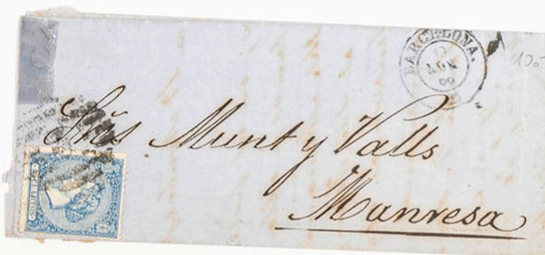 BARCELONA.
Sres Munt y Valls
Manresa